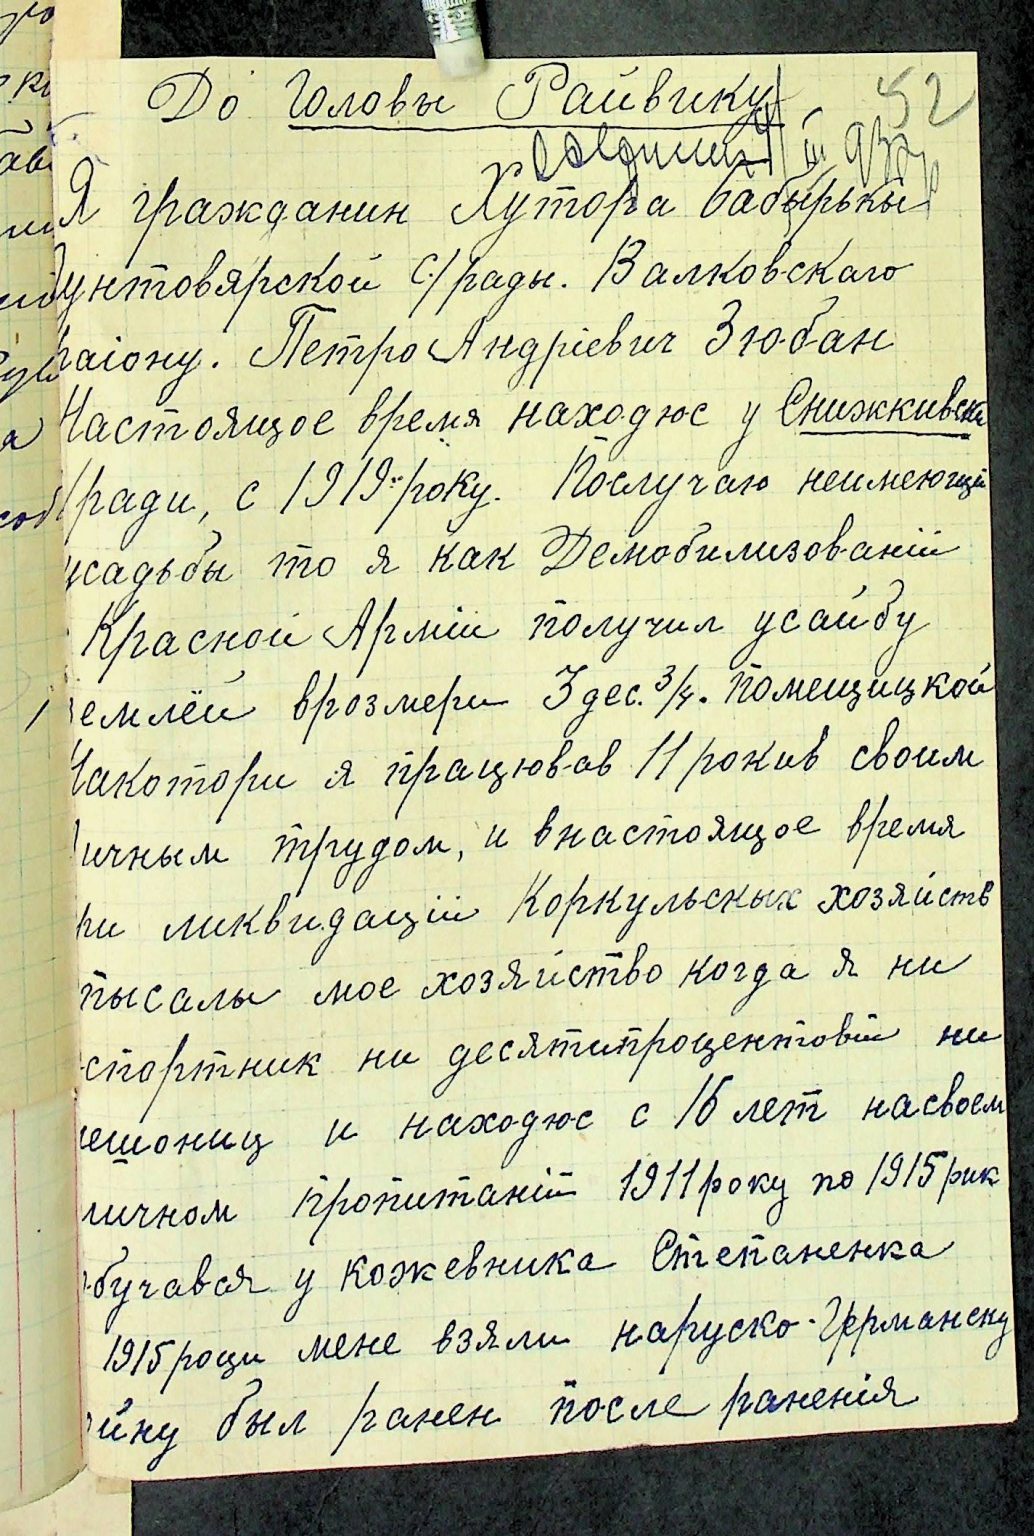 52
До Головы Райвику
III 932
Я гражданин Хутора бабырькы
унтовярской с/рады. Валковскаго
раіону. Петро Андріевич Зюбан
Настоящое время находюс у Снижкивск
ради, с 1919 року. Послучаю неимеющій
усадьбы то я как Демобилизованій
Красной Арміи получил усайбу
землёй врозмери 3 дес. 3/4. помещицкой
Накотори я працювов 11 рокив своим
личным трудом, и внастоящое время
ри ликвидаціи Коркульскых хозяйств
пысалы мое хозяйство когда я ни
спортник ни десятипроцентовій ни
ешониц и находюс с 16 лет насвоем
личном пропитаній 1911 року по 1915 рик
обучавоя у кожевника Степаненка
1915 роци мене взяли наруско-Германску
ойну был ранен после раненія